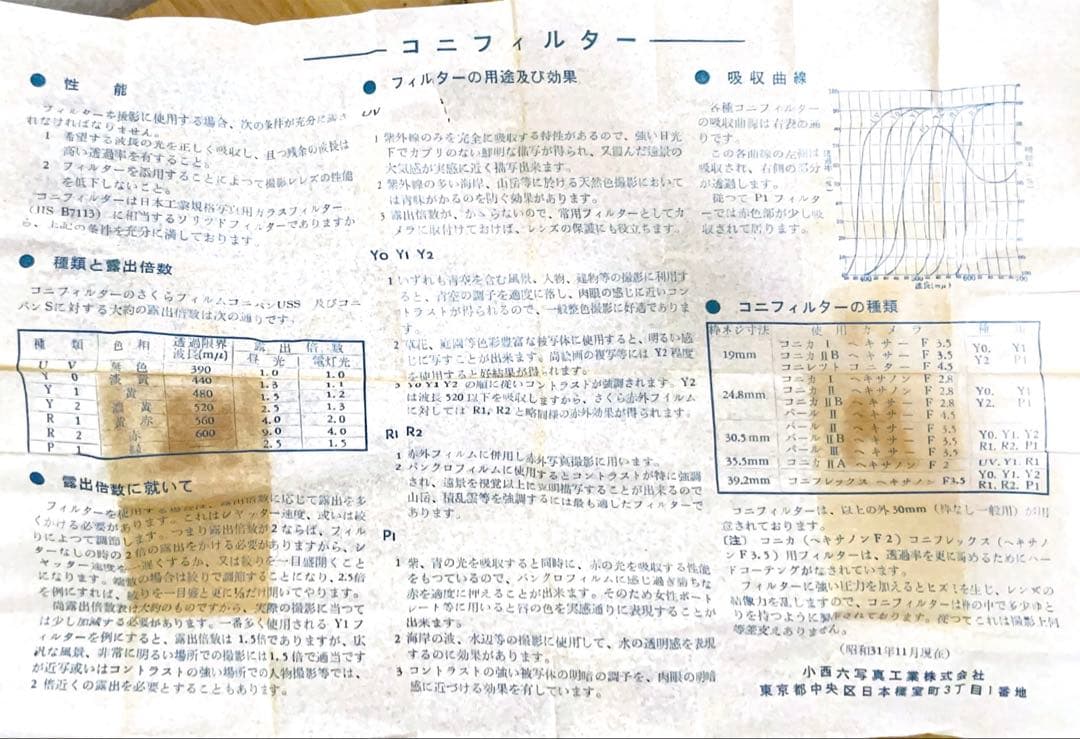 コニフィルター
● 性 能
フィルターを撮影に使用する場合、次の条件が充分に満さ
れなければなりません。
1 希望する波長の光を正しく吸収し、且つ残余の波長は
高い透過率を有すること。
2 フィルターを添用することによつて撮影レンズの性能
を低下しないこと。
コニフィルターは日本工業規格写真用ガラスフィルター
(JIS-B7113) に相当するソリッドフィルターでありますか
ら、上記の条件を充分に満しております。
● 種類と露出倍数
コニフィルターのさくらフィルムコニパンUSS 及びコニ
パンSに対する大約の露出倍数は次の通りです。
種 類 色 相 透過限界波長(mμ) 露出倍数 昼光 電灯光
U V 無色 390 1.0
Y 0 淡黄 440 1.3 1.1
Y 1 黄 480 1.5 1.2
Y 2 濃黄 520 2.5 1.3
R 1 黄赤 560 4.0 2.0
R 2 赤 600 9.0 4.0
P 1 緑 2.5 1.5
● 露出倍数に就いて
フィルターを使用する場合は 露出倍数に応じて露出を多
くかける必要があります。これはシャッター速度、或いは絞
りによつて調節します。つまり露出倍数が2ならば、フィル
ターなしの時の2倍の露出をかける必要がありますから、シ
ャッター速度を 遅くするか、又は絞りを一目盛開くこと
になります。端数の場合は絞りで調節することになり、2.5倍
を例にすれば、絞りを一目盛と更に⅓だけ開いてやります。
尚露出倍数表は大約のものですから、実際の撮影に当つて
は少し加減する必要があります。一番多く使用される Y1フ
ィルターを例にすると、露出倍数は 1.5倍でありますが、広
汎な風景、非常に明るい場所での撮影には1.5倍で適当です
が近写或いはコントラストの強い場所での人物撮影等では、
2 倍近くの露出を必要とすることもあります。
● フィルターの用途及び効果
UV
1 紫外線のみを完全に吸収する特性があるので、強い日光
下でカブリのない鮮明な描写が得られ、又霞んだ遠景の
大気感が実感に近く描写出来ます。
2 紫外線の多い海岸、山岳等に於ける天然色撮影において
は青味がかるのを防ぐ効果があります。
3 露出倍数が、かゝらないので、常用フィルターとしてカ
メラに取付けておけば、レンズの保護にも役立ちます。
Y0 Y1 Y2
1 いずれも青空を含む風景、人物、建物等の撮影に利用す
ると、青空の調子を適度に落し、肉眼の感じに近いコン
トラストが得られるので、一般整色撮影に好適でありま
す。
2 草花、庭園等色彩豊富な被写体に使用すると、明るい感
じに写すことが出来ます。尚絵画の複写等には Y2 程度
を使用すると好結果が得られます。
3 Y0 Y1 Y2 の順に従いコントラストが強調されます。Y2
は波長 520 以下を吸収しますから、さくら赤外フィルム
に対しては R1, R2 と略同様の赤外効果が得られます。
R1 R2
1 赤外フィルムに併用し赤外写真撮影に用います。
2 パンクロフィルムに使用するとコントラストが特に強調
され、遠景を視覚以上に鮮明描写することが出来るので
山岳、積乱雲等を強調するには最も適したフィルターで
あります。
P1
1 紫、青の光を吸収すると同時に、赤の光を吸収する性能
をもつているので、パンクロフィルムに感じ過ぎ勝ちな
赤を適度に押えることが出来ます。そのため女性ポート
レート等に用いると唇の色を実感通りに表現することが
出来ます。
2 海岸の波、水辺等の撮影に使用して、水の透明感を表現
するのに効果があります。
3 コントラストの強い被写体の明暗の調子を、肉眼の明暗
感に近づける効果を有しています。
● 吸収曲線
各種コニフィルター
の吸収曲線は右表の通
りです。
この各曲線の左側は
吸収され、右側の部分
が透過します。
従つて P1 フィルタ
ーでは赤色部が少し吸
収されて居ります。
波長(mμ)
● コニフィルターの種類
枠ネジ寸法 使用カメラ 種 類
19mm コニカ I ヘキサー F 3.5 Y0, Y1
コニカ II B ヘキサー F 3.5 Y2 P1
コニレット コニター F 4.5
24.8mm コニカ I ヘキサノン F 2.8 Y0, Y1
コニカ II ヘキサノン F 2.8 Y2, P1
コニカ II B ヘキサノン F 2.8
パール II ヘキサー F 4.5
30.5mm パール II ヘキサー F 3.5 Y0, Y1, Y2
パール II B ヘキサー F 3.5 R1, R2, P1
パール III ヘキサー F 3.5
35.5mm コニカ II A ヘキサノン F 2 UV, Y1, R1
39.2mm コニフレックス ヘキサノン F3.5 Y0, Y1, Y2
R1, R2, P1
コニフィルターは、以上の外30mm (枠なし一般用) が用
意されております。
〔注〕 コニカ (ヘキサノンF2) コニフレックス (ヘキサノ
ンF3.5) 用フィルターは、透過率を更に高めるためにハー
ドコーテングがなされています。
フィルターに強い圧力を加えるとヒズミを生じ、レンズの
結像力を乱しますので、コニフィルターは枠の中で多少ゆと
りを持つように製作されております。従つてこれは撮影上何
等差支えありません。
(昭和31年11月現在)
小西六写真工業株式会社
東京都中央区日本橋室町3丁目1番地